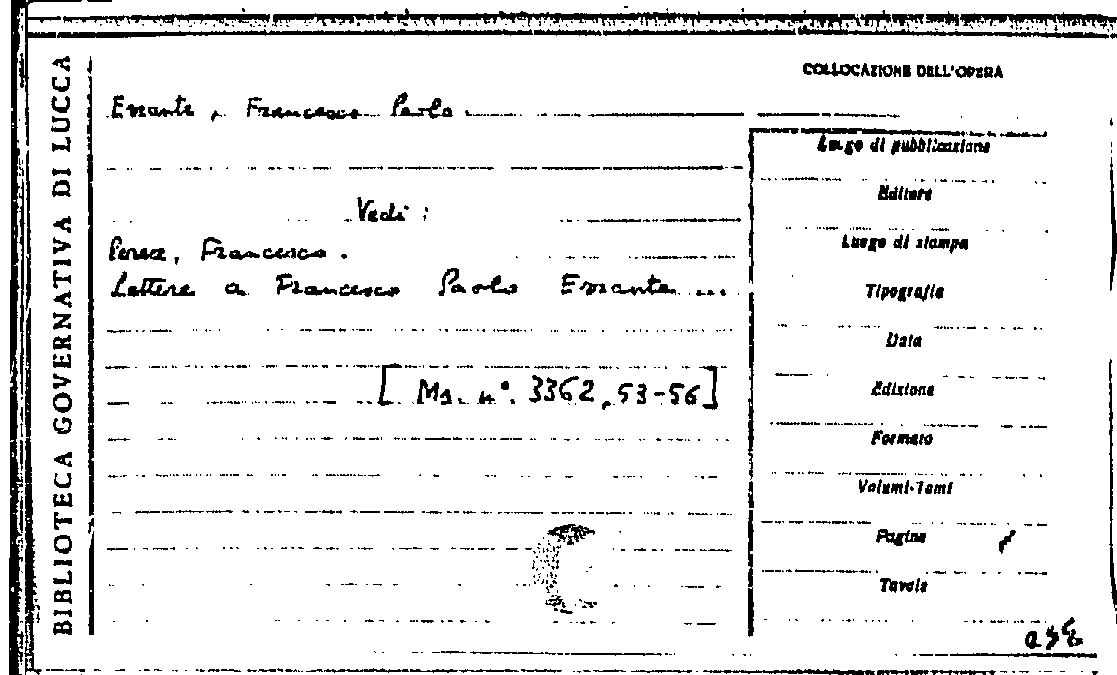 BIBLIOTECA GOVERNATIVA DI LUCCA
COLLOCAZIONE DELL'OPERA
Errante, Francesco Paolo.
Vedi:
Perez, Francesco.
Lettere a Francesco Paolo Errante ...
[Ms. n°. 3362, 53-56]
Luogo di pubblicazione
Editore
Luogo di stampa
Tipografia
Data
Edizione
Formato
Volumi-Tomi
Pagine
Tavole